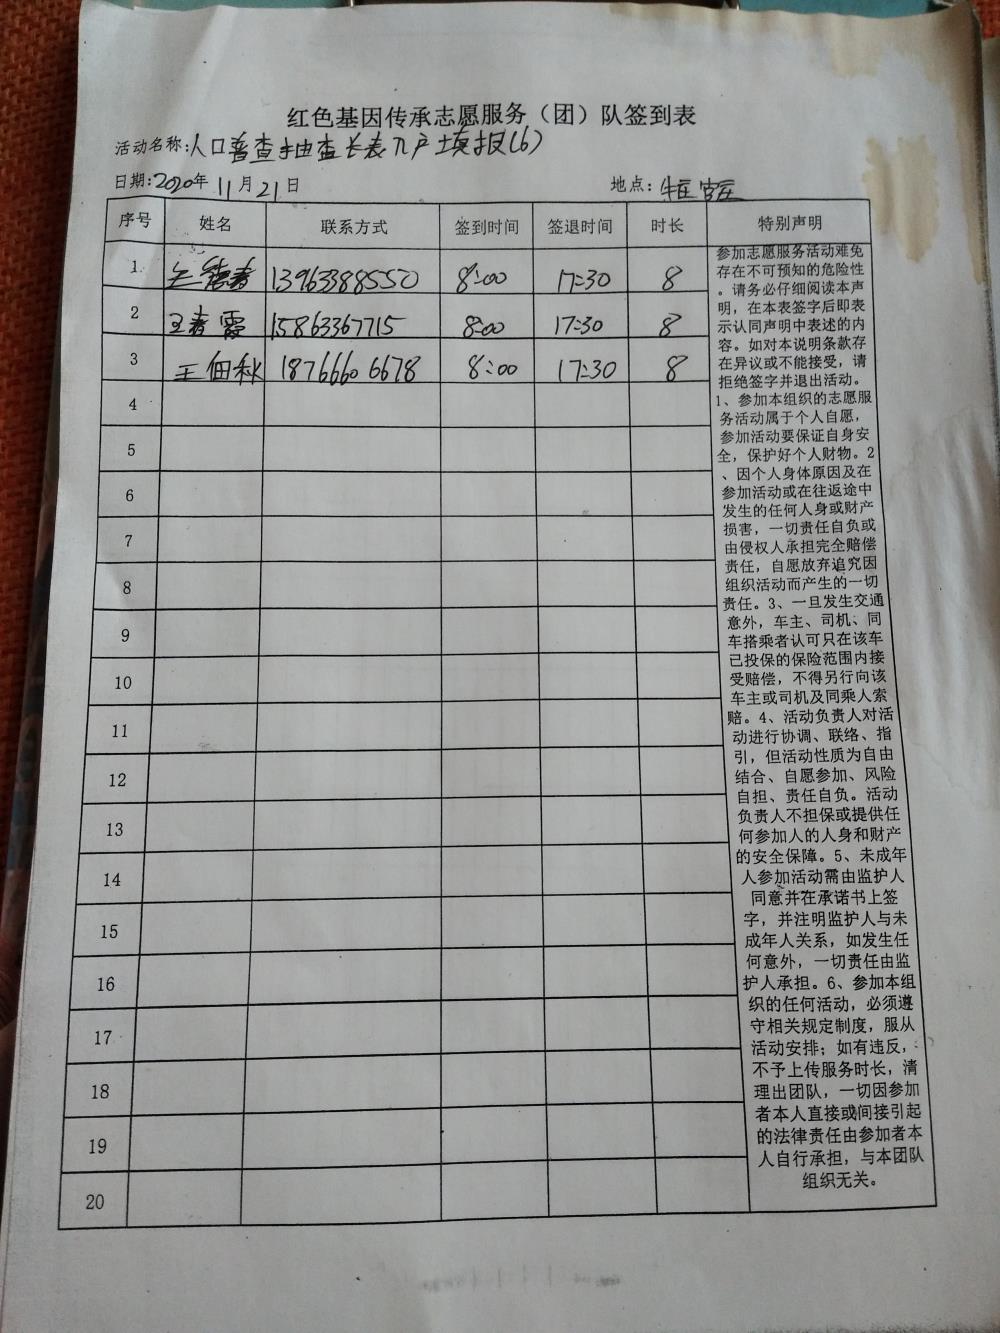 红色基因传承志愿服务（团）队签到表
活动名称：人口普查抽查长表入户填报(6)
日期：2020年 11月 21日 地点：
序号 姓名 联系方式 签到时间 签退时间 时长 特别声明
1 13963388550 8:00 17:30 8
2 王春霞 15863367715 8:00 17:30 8
3 王佃秋 18766606678 8:00 17:30 8
4
5
6
7
8
9
10
11
12
13
14
15
16
17
18
19
20
参加志愿服务活动难免
存在不可预知的危险性
。请务必仔细阅读本声
明，在本表签字后即表
示认同声明中表述的内
容。如对本说明条款存
在异议或不能接受，请
拒绝签字并退出活动。
1、参加本组织的志愿服
务活动属于个人自愿，
参加活动要保证自身安
全，保护好个人财物。2
、因个人身体原因及在
参加活动或在往返途中
发生的任何人身或财产
损害，一切责任自负或
由侵权人承担完全赔偿
责任，自愿放弃追究因
组织活动而产生的一切
责任。3、一旦发生交通
意外，车主、司机、同
车搭乘者认可只在该车
已投保的保险范围内接
受赔偿，不得另行向该
车主或司机及同乘人索
赔。4、活动负责人对活
动进行协调、联络、指
引，但活动性质为自由
结合、自愿参加、风险
自担、责任自负。活动
负责人不担保或提供任
何参加人的人身和财产
的安全保障。5、未成年
人参加活动需由监护人
同意并在承诺书上签
字，并注明监护人与未
成年人关系，如发生任
何意外，一切责任由监
护人承担。6、参加本组
织的任何活动，必须遵
守相关规定制度，服从
活动安排；如有违反，
不予上传服务时长，清
理出团队，一切因参加
者本人直接或间接引起
的法律责任由参加者本
人自行承担，与本团队
组织无关。